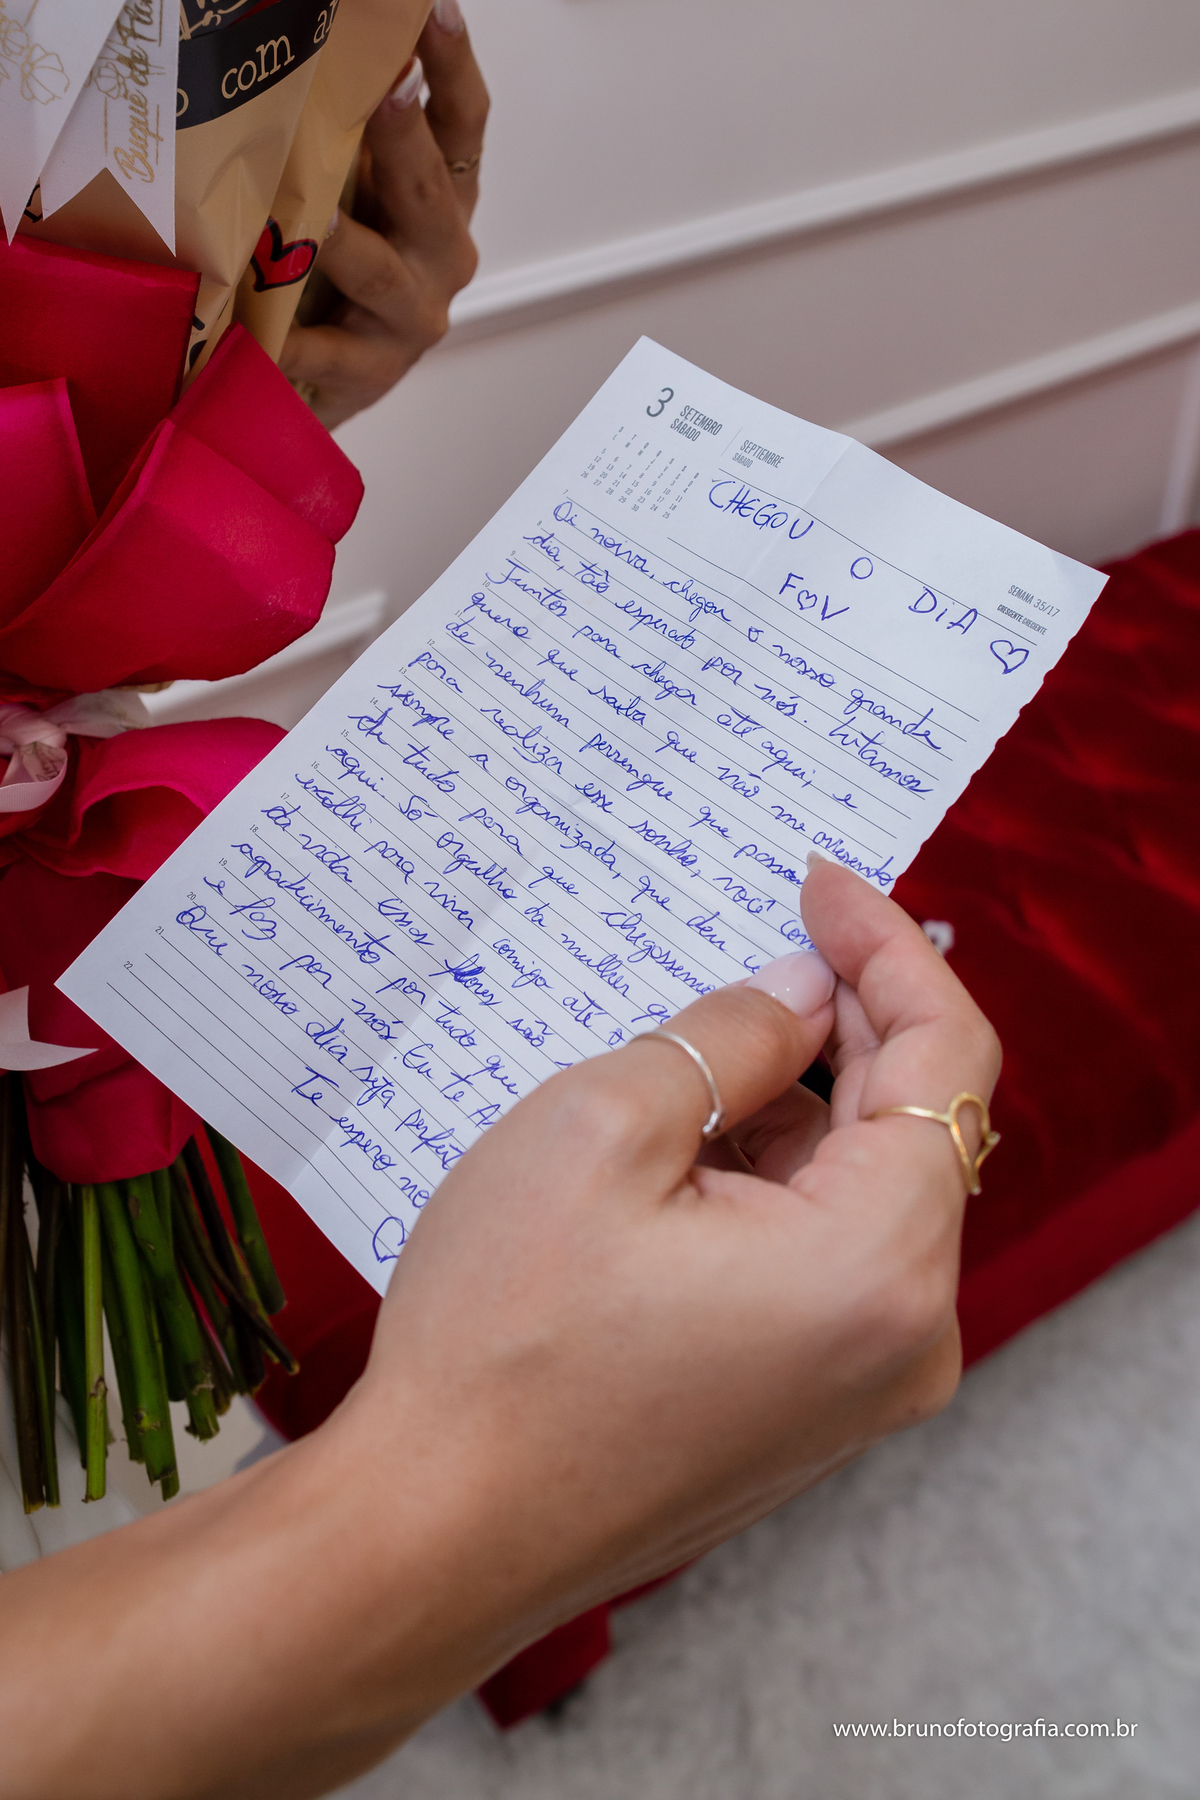 com
Buquê de
3 SETEMBRO SÁBADO
SEPTIEMBRE SÁBADO
SEMANA 35/17
CRESCENTE CRECIENTE
CHEGOU O DIA ♡
F♡V
7
8
9
10
11
12
13
14
15
16
17
18
19
20
21
22
Oi noiva, chegou o nosso grande
dia, tão esperado por nós. Lutamos
Juntos para chegar até aqui, e
quero que saiba que não me arrependo
de nenhum perrengue que
para realizar esse sonho, você
sempre a organizada, que deu
de tudo para que chegássemos
aqui. Só orgulho da mulher
escolhi para viver comigo até o
da vida. Essas flores são
agradecimento por tudo que
e fez por nós. Eu te
Que nosso dia seja
Te espero no
♡
www.brunofotografia.com.br